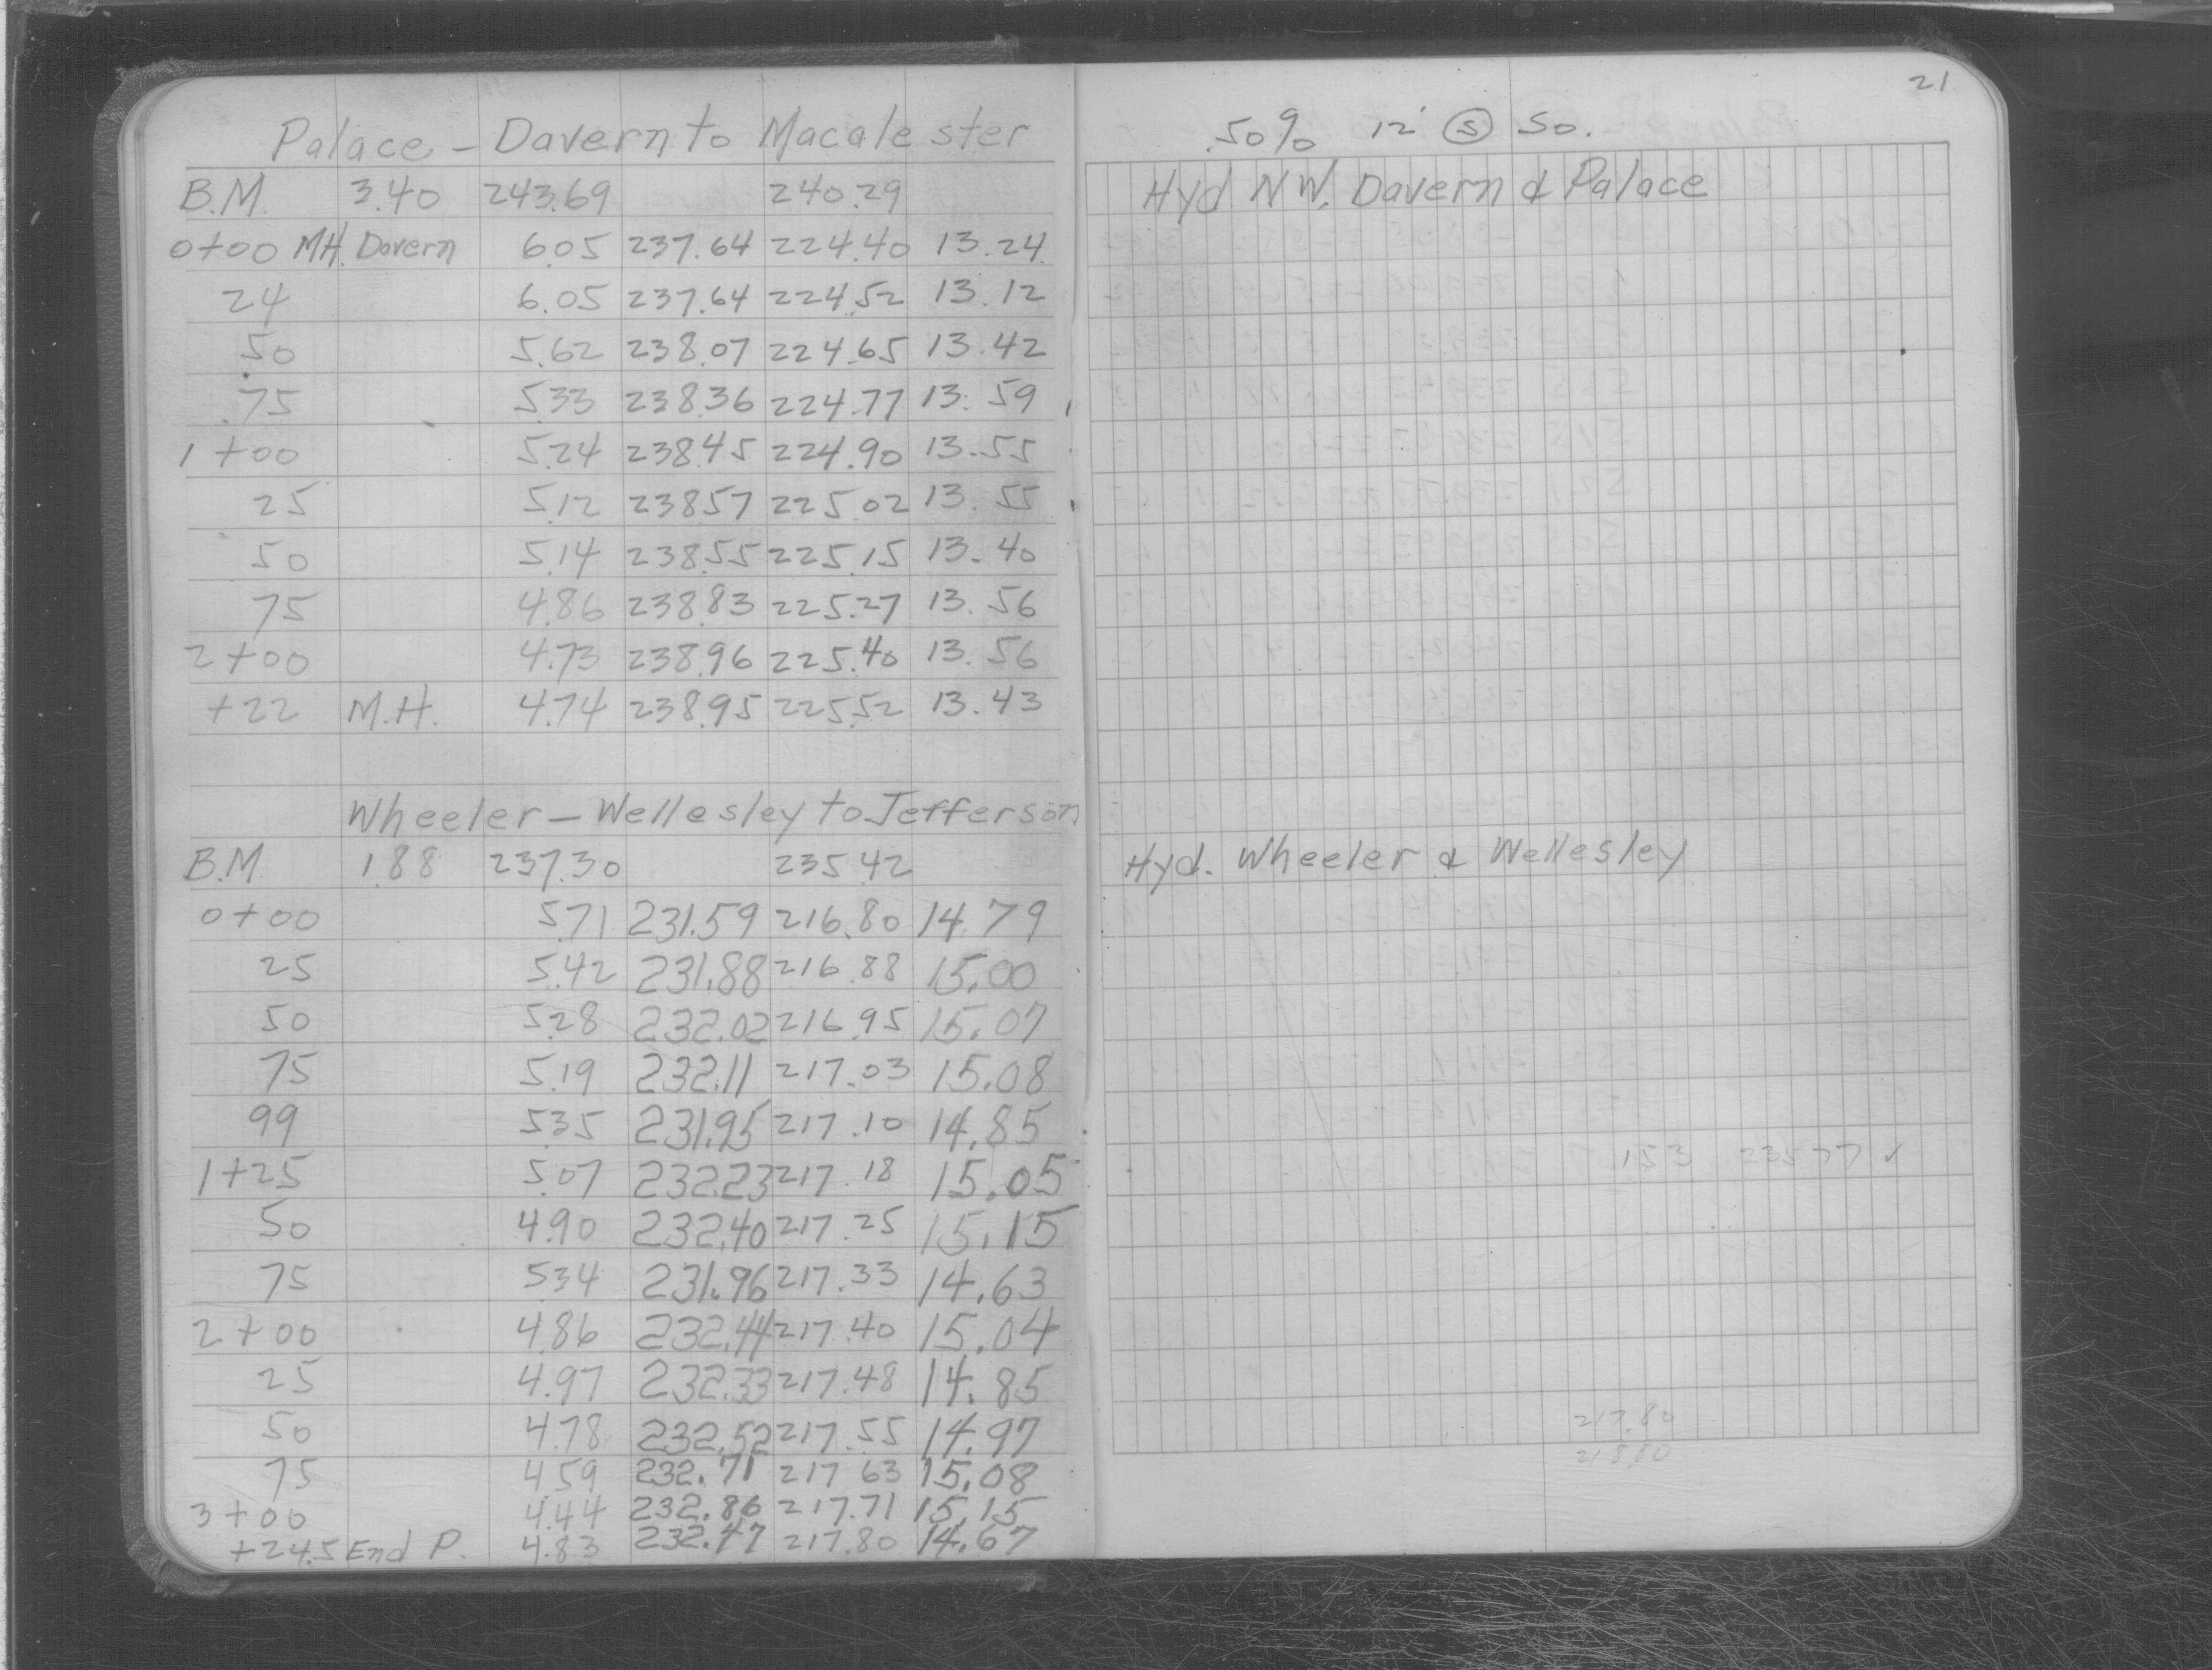 Palace - Davern to Macalester
B.M. 3.40 243.69 240.29
0+00 MH. Davern 6.05 237.64 224.40 13.24
24 6.05 237.64 224.52 13.12
50 5.62 238.07 224.65 13.42
75 5.33 238.36 224.77 13.59
1+00 5.24 238.45 224.90 13.55
25 5.12 238.57 225.02 13.55
50 5.14 238.55 225.15 13.40
75 4.86 238.83 225.27 13.56
2+00 4.73 238.96 225.40 13.56
+22 M.H. 4.74 238.95 225.52 13.43
Wheeler - Wellesley to Jefferson
B.M. 1.88 237.30 235.42
0+00 5.71 231.59 216.80 14.79
25 5.42 231.88 216.88 15.00
50 5.28 232.02 216.95 15.07
75 5.19 232.11 217.03 15.08
99 5.35 231.95 217.10 14.85
1+25 5.07 232.23 217.18 15.05
50 4.90 232.40 217.25 15.15
75 5.34 231.96 217.33 14.63
2+00 4.86 232.44 217.40 15.04
25 4.97 232.33 217.48 14.85
50 4.78 232.52 217.55 14.97
75 4.59 232.71 217.63 15.08
3+00 4.44 232.86 217.71 15.15
+24.5 End P. 4.83 232.47 217.80 14.67
21
.50% 12" Ⓢ So.
Hyd. NW. Davern & Palace
Hyd. Wheeler & Wellesley
153 23577 ✓
217.80
218.60